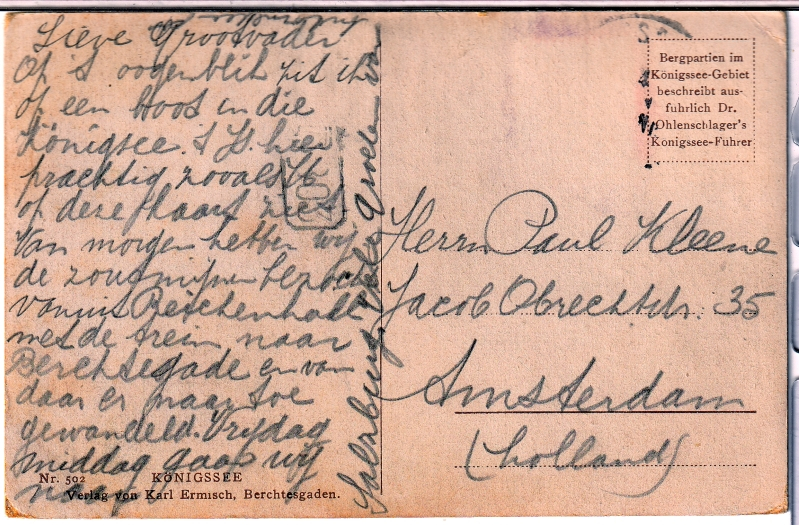 Lieve Grootvader
Op 's oogenblik zit ik
op een boot in die
Königsee. 's Is hier
prachtig zooals U
op deze kaart ziet
Van morgen hebben wij
de zoutmijnen bezocht
vanuit Reichenhall
met de trein naar
Berchtsegade en van
daar er naar toe
gewandeld. Vrijdag
middag gaan wij
naar
Salzburg. Vele Groeten van
Bergpartien im
Königssee-Gebiet
beschreibt aus-
fuhrlich Dr.
Ohlenschlager's
Konigssee-Fuhrer
Herrn Paul Kleene
Jacob Obrechtstr. 35
Amsterdam
(Holland)
Nr. 502 KÖNIGSSEE
Verlag von Karl Ermisch, Berchtesgaden.